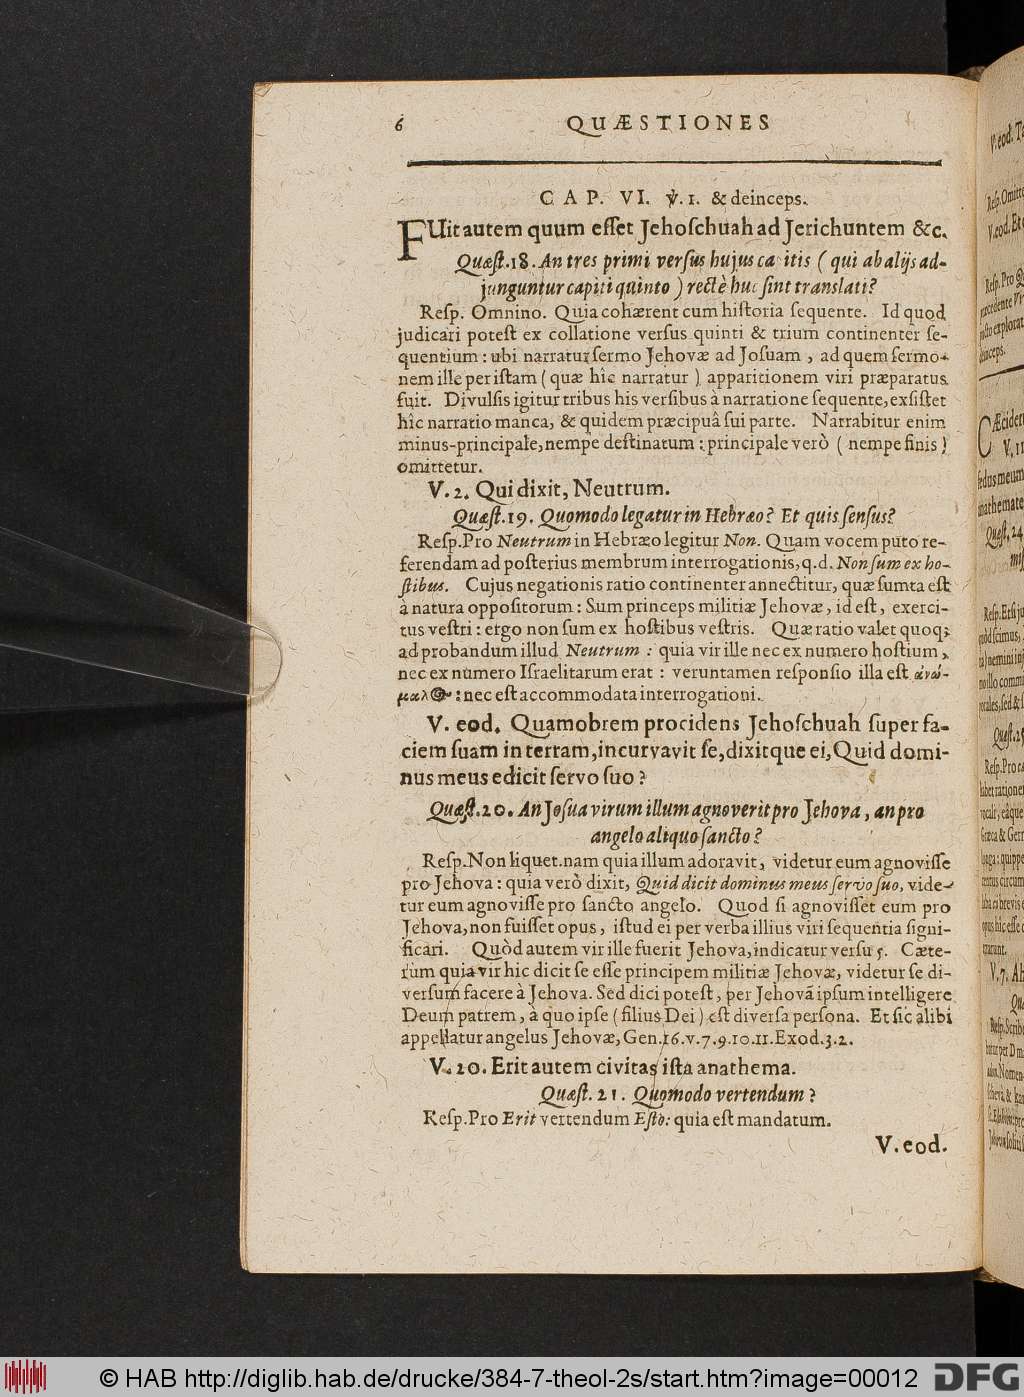 6 QUÆSTIONES
CAP. VI. ℣. 1. & deinceps.
FUit autem quum eſſet Jehoſchuah ad Jerichuntem &c.
Quæſt. 18. An tres primi verſus hujus ca itis ( qui ab alijs ad-
junguntur capiti quinto ) rectè huc ſint translati?
Reſp. Omnino. Quia cohærent cum hiſtoria ſequente. Id quod
judicari poteſt ex collatione verſus quinti & trium continenter ſe-
quentium: ubi narratur ſermo Jehovæ ad Joſuam, ad quem ſermo-
nem ille per iſtam ( quæ hîc narratur ) apparitionem viri præparatus
fuit. Divulſis igitur tribus his verſibus à narratione ſequente, exſiſtet
hîc narratio manca, & quidem præcipuâ ſui parte. Narrabitur enim
minus-principale, nempe deſtinatum: principale verò ( nempe finis )
omittetur.
V. 2. Qui dixit, Neutrum.
Quæſt. 19. Quomodo legatur in Hebræo? Et quis ſenſus?
Reſp. Pro Neutrum in Hebræo legitur Non. Quam vocem puto re-
ferendam ad poſterius membrum interrogationis, q.d. Non ſum ex ho-
ſtibus. Cujus negationis ratio continenter annectitur, quæ ſumta eſt
à natura oppoſitorum: Sum princeps militiæ Jehovæ, id eſt, exerci-
tus veſtri: ergo non ſum ex hoſtibus veſtris. Quæ ratio valet quoq;
ad probandum illud Neutrum: quia vir ille nec ex numero hoſtium,
nec ex numero Iſraelitarum erat: veruntamen reſponſio illa eſt ἀνώ-
μαλος: nec eſt accommodata interrogationi.
V. eod. Quamobrem procidens Jehoſchuah ſuper fa-
ciem ſuam in terram, incurvavit ſe, dixitque ei, Quid domi-
nus meus edicit ſervo ſuo?
Quæſt. 20. An Joſua virum illum agnoverit pro Jehova, an pro
angelo aliquo ſancto?
Reſp. Non liquet. nam quia illum adoravit, videtur eum agnoviſſe
pro Jehova: quia verò dixit, Quid dicit dominus meus ſervo ſuo, vide-
tur eum agnoviſſe pro ſancto angelo. Quod ſi agnoviſſet eum pro
Jehova, non fuiſſet opus, iſtud ei per verba illius viri ſequentia ſigni-
ficari. Quòd autem vir ille fuerit Jehova, indicatur verſu 5. Cæte-
rùm quia vir hic dicit ſe eſſe principem militiæ Jehovæ, videtur ſe di-
verſum facere à Jehova. Sed dici poteſt, per Jehovã ipſum intelligere
Deum patrem, à quo ipſe ( filius Dei ) eſt diverſa perſona. Et ſic alibi
appellatur angelus Jehovæ, Gen. 16. v. 7. 9. 10. 11. Exod. 3. 2.
V. 20. Erit autem civitas iſta anathema.
Quæſt. 21. Quomodo vertendum?
Reſp. Pro Erit vertendum Eſto: quia eſt mandatum.
V. eod.
© HAB http://diglib.hab.de/drucke/384-7-theol-2s/start.htm?image=00012
DFG